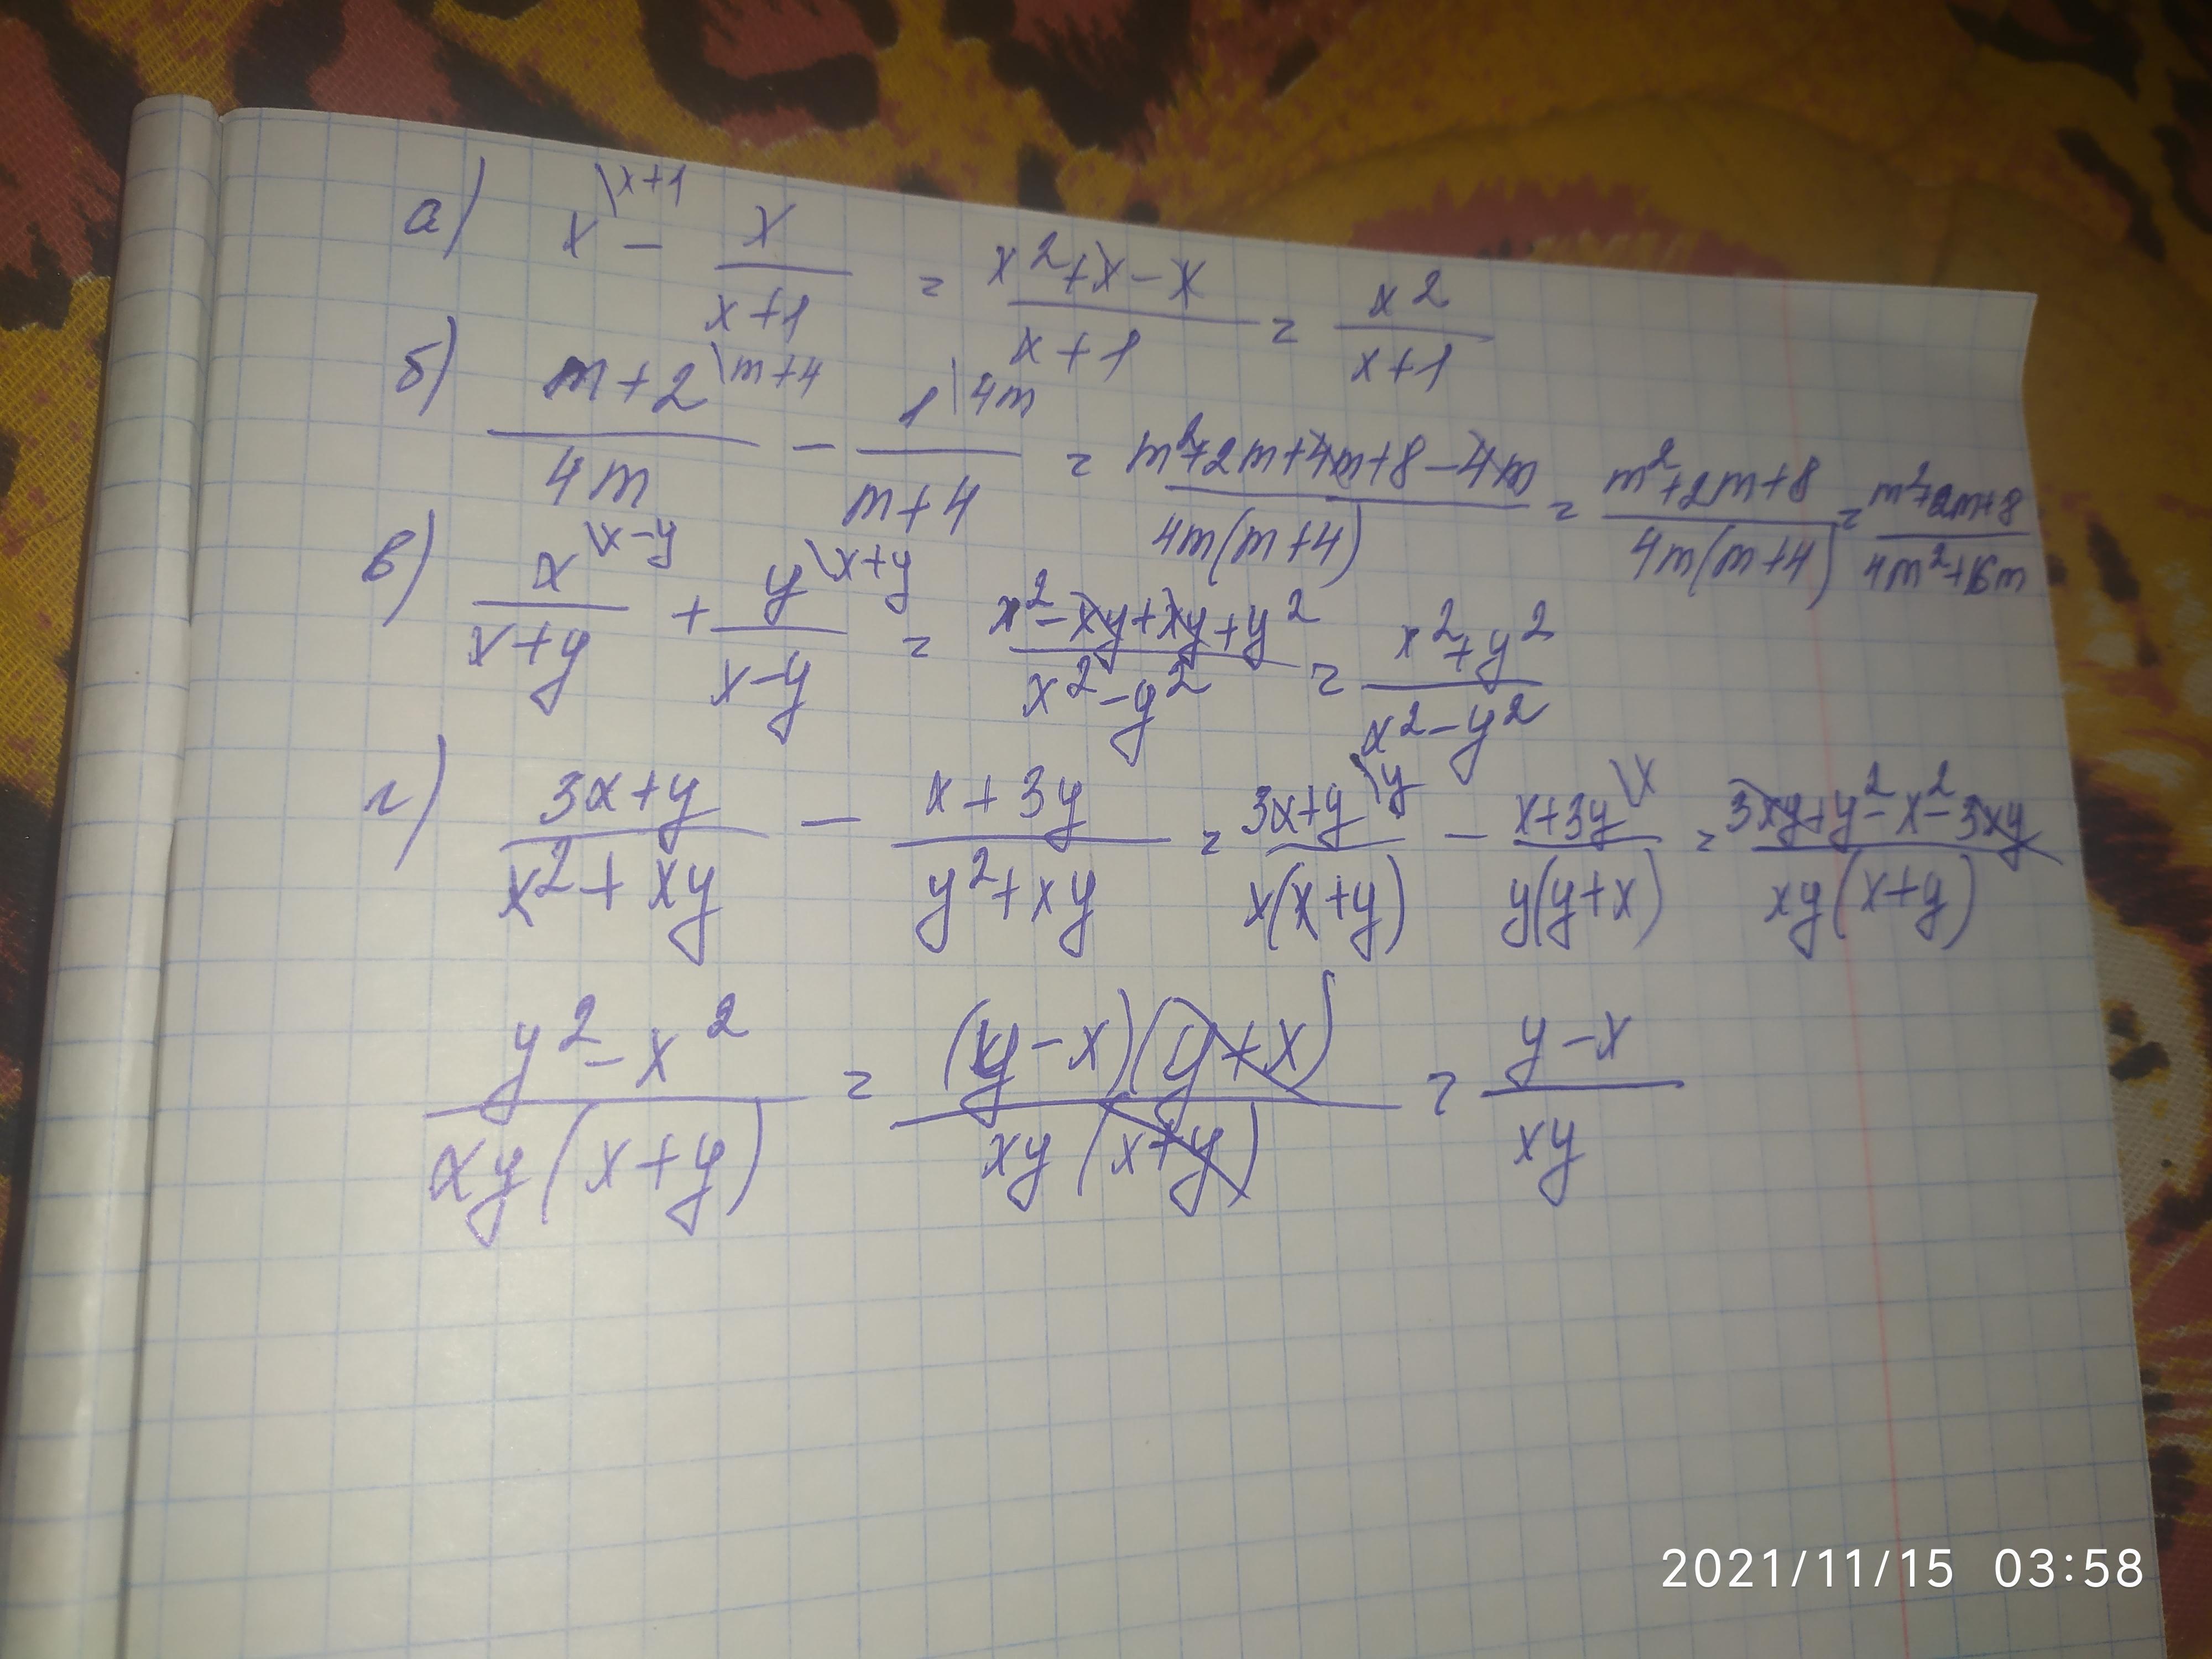 а) x\x+1 − x/(x+1) = (x²+x−x)/(x+1) = x²/(x+1)
б) (m+2)\m+4/(4m) − 1\4m/(m+4) = (m²+2m+4m+8−4m)/(4m(m+4)) = (m²+2m+8)/(4m(m+4)) = (m²+2m+8)/(4m²+16m)
в) x\x−y/(x+y) + y\x+y/(x−y) = (x²−xy+xy+y²)/(x²−y²) = (x²+y²)/(x²−y²)
г) (3x+y)/(x²+xy) − (x+3y)/(y²+xy) = (3x+y)\y/(x(x+y)) − (x+3y)\x/(y(y+x)) = (3xy+y²−x²−3xy)/(xy(x+y))
(y²−x²)/(xy(x+y)) = (y−x)(y+x)/(xy(x+y)) = (y−x)/(xy)
2021/11/15 03:58